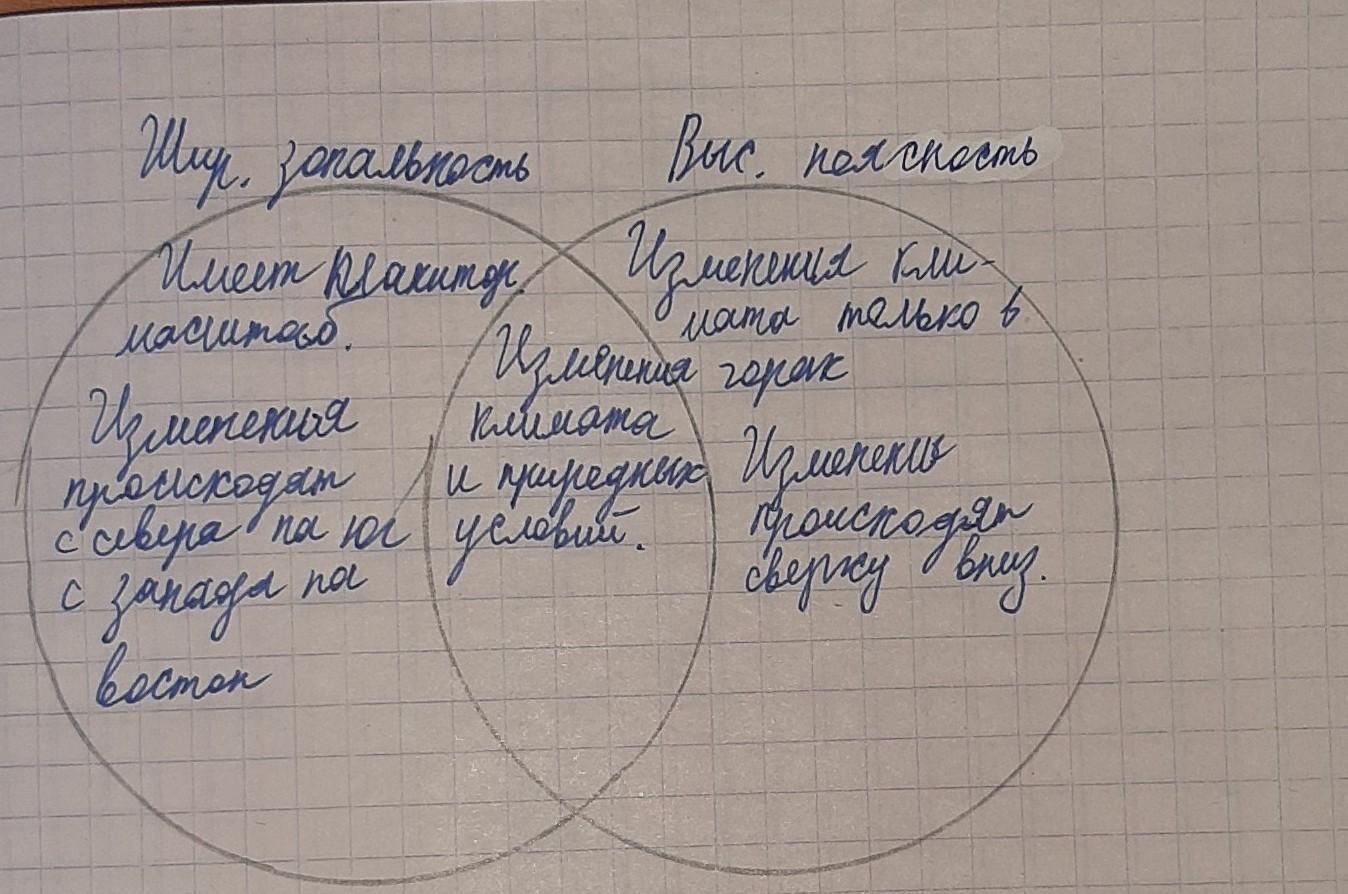 Шир. зональность
Выс. поясность
Имеет планитар.
масштаб.
Изменения
происходят
с севера на юг
с запада на
восток
Изменения
климата
и природных
условий.
Изменения кли-
мата только в
горах
Изменения
происходят
сверху вниз.